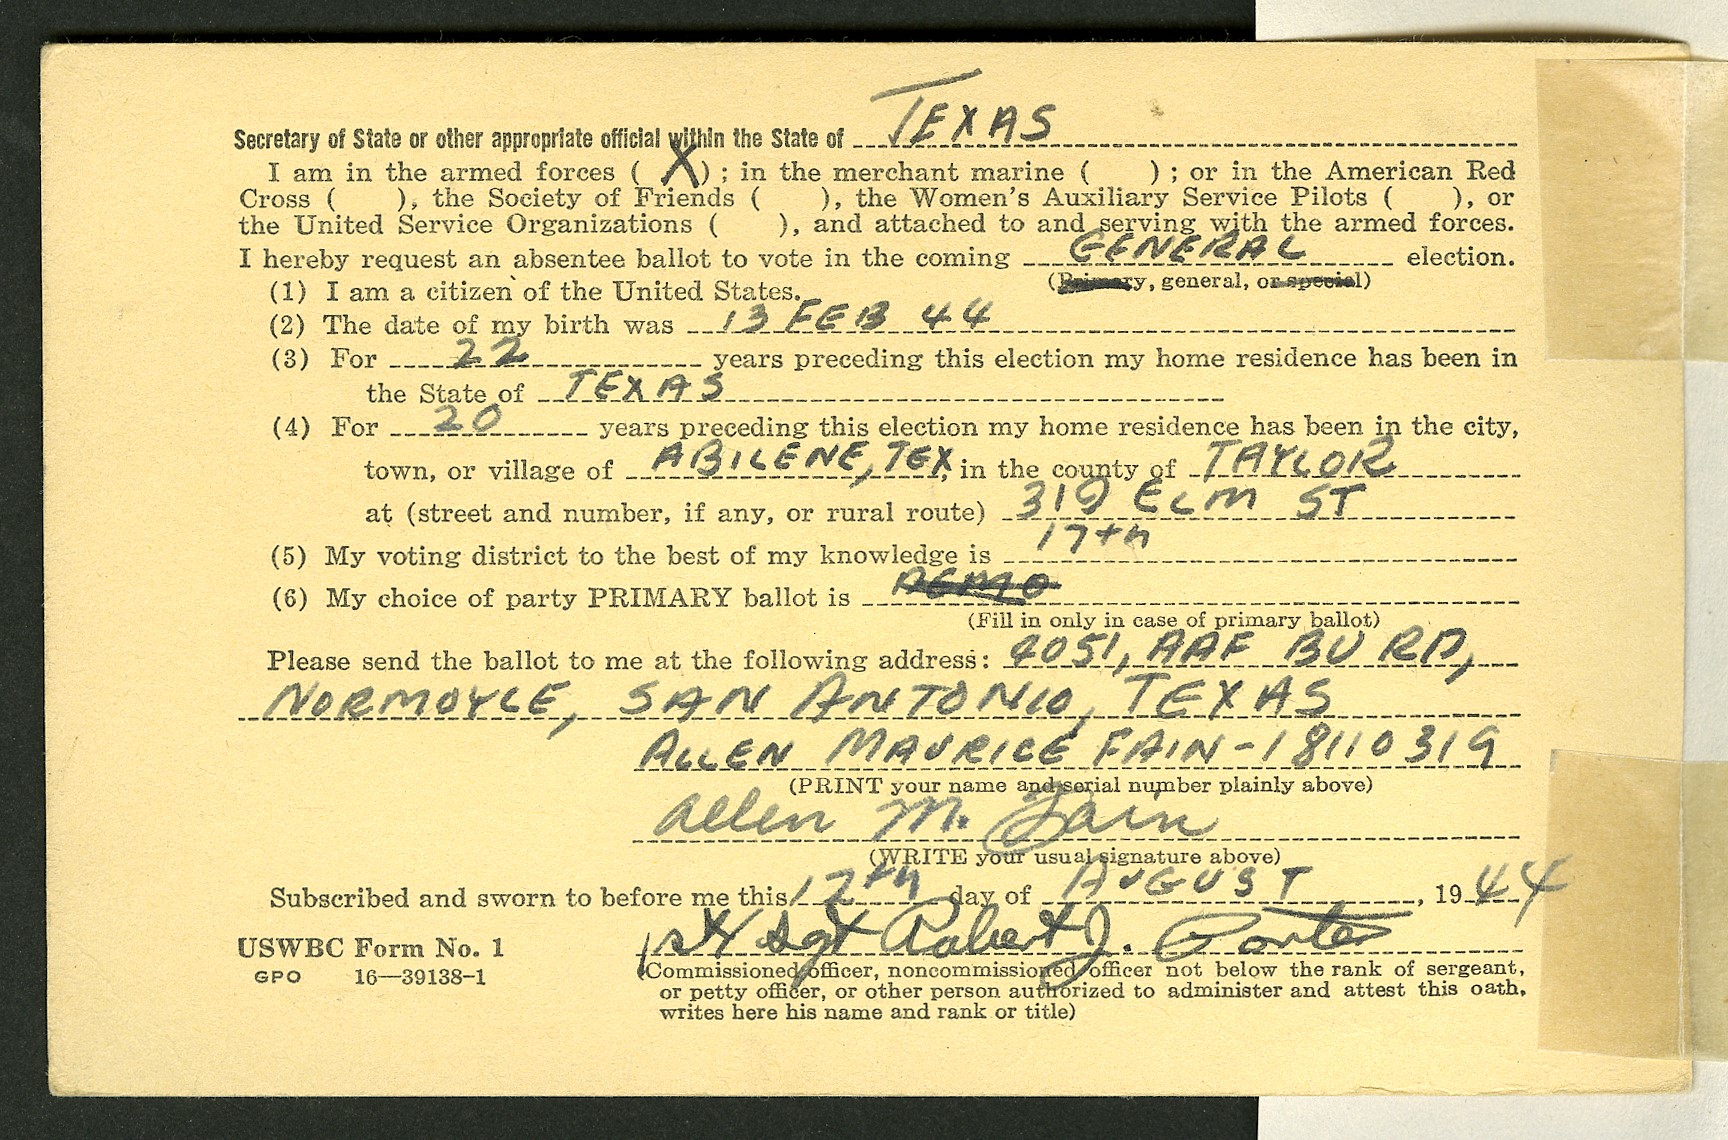 Secretary of State or other appropriate official within the State of TEXAS
I am in the armed forces ( X ) ; in the merchant marine ( ) ; or in the American Red
Cross ( ), the Society of Friends ( ), the Women's Auxiliary Service Pilots ( ), or
the United Service Organizations ( ), and attached to and serving with the armed forces.
I hereby request an absentee ballot to vote in the coming GENERAL election.
(Primary, general, or special)
(1) I am a citizen of the United States.
(2) The date of my birth was 13 FEB 44
(3) For 22 years preceding this election my home residence has been in
the State of TEXAS
(4) For 20 years preceding this election my home residence has been in the city,
town, or village of ABILENE, TEX, in the county of TAYLOR
at (street and number, if any, or rural route) 319 ELM ST
(5) My voting district to the best of my knowledge is 17th
(6) My choice of party PRIMARY ballot is DEMO
(Fill in only in case of primary ballot)
Please send the ballot to me at the following address: 4051, AAF BU RD,
NORMOYLE, SAN ANTONIO, TEXAS
ALLEN MAURICE FAIN - 18110319
(PRINT your name and serial number plainly above)
Allen M. Fain
(WRITE your usual signature above)
Subscribed and sworn to before me this 12th day of AUGUST, 19 44
1st Sgt Robert J. Porter
USWBC Form No. 1
GPO 16—39138-1
(Commissioned officer, noncommissioned officer not below the rank of sergeant,
or petty officer, or other person authorized to administer and attest this oath,
writes here his name and rank or title)